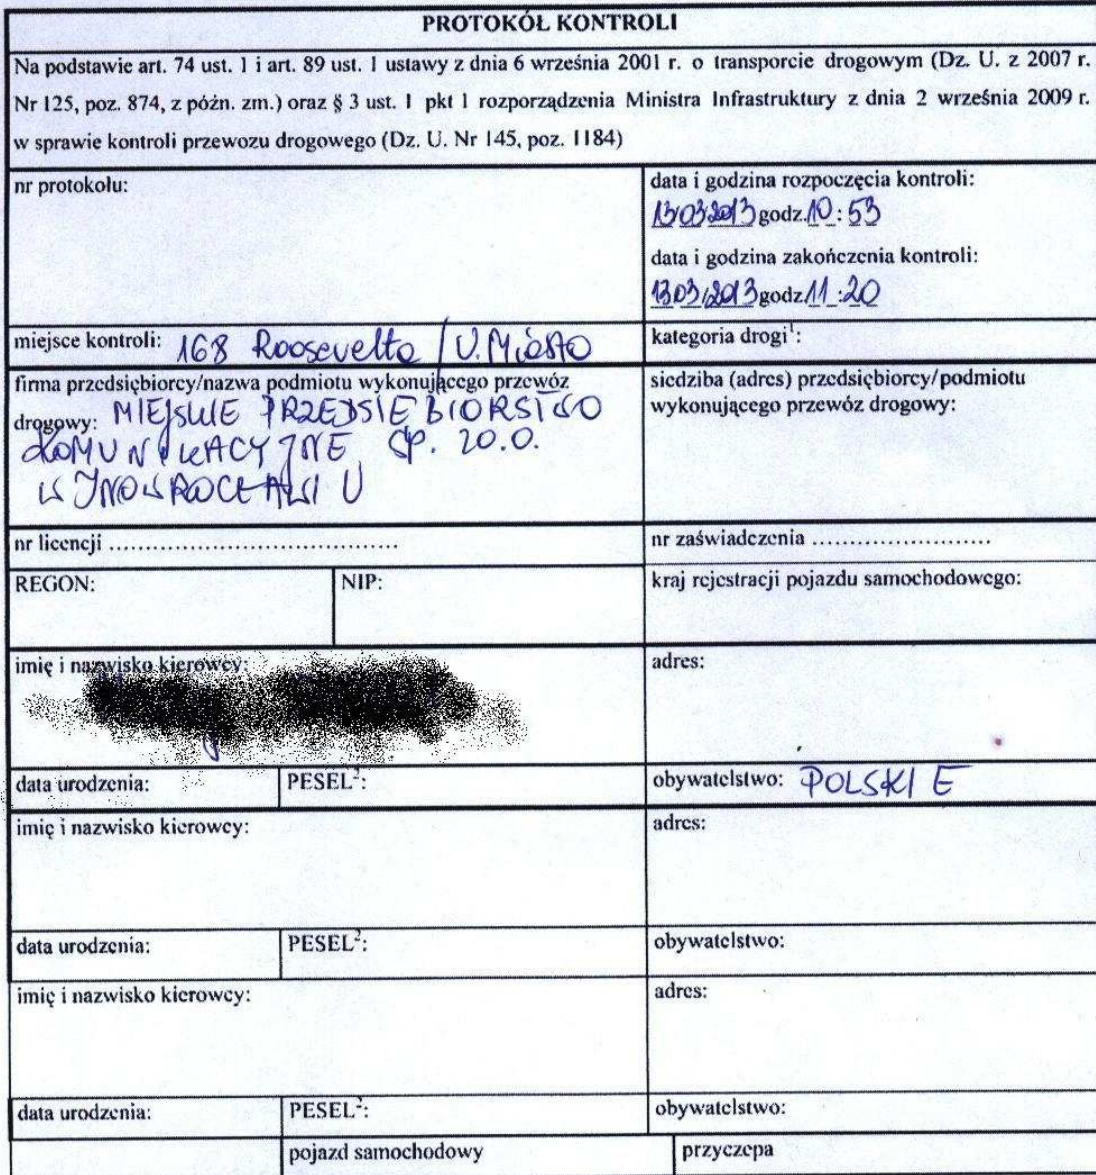 PROTOKÓŁ KONTROLI
Na podstawie art. 74 ust. 1 i art. 89 ust. 1 ustawy z dnia 6 września 2001 r. o transporcie drogowym (Dz. U. z 2007 r.
Nr 125, poz. 874, z późn. zm.) oraz § 3 ust. 1 pkt 1 rozporządzenia Ministra Infrastruktury z dnia 2 września 2009 r.
w sprawie kontroli przewozu drogowego (Dz. U. Nr 145, poz. 1184)
nr protokołu:
data i godzina rozpoczęcia kontroli:
13032013 godz. 10 : 53
data i godzina zakończenia kontroli:
13032013 godz. 11 : 20
miejsce kontroli: 168 Roosevelta / U. Miasto
kategoria drogi¹:
firma przedsiębiorcy/nazwa podmiotu wykonującego przewóz
drogowy: MIEJSKIE PRZEDSIĘBIORSTWO
KOMUNIKACYJNE SP. ZO.O.
W INOWROCŁAWIU
siedziba (adres) przedsiębiorcy/podmiotu
wykonującego przewóz drogowy:
nr licencji ........................................
nr zaświadczenia .........................
REGON:
NIP:
kraj rejestracji pojazdu samochodowego:
imię i nazwisko kierowcy:
adres:
data urodzenia:
PESEL²:
obywatelstwo: POLSKIE
imię i nazwisko kierowcy:
adres:
data urodzenia:
PESEL²:
obywatelstwo:
imię i nazwisko kierowcy:
adres:
data urodzenia:
PESEL²:
obywatelstwo:
pojazd samochodowy
przyczepa